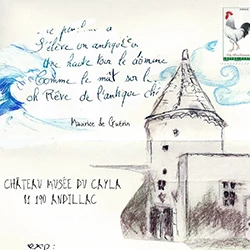 S'élève un antique
Une haute tour le domine
Comme le mât sur le
oh Rêve de l'antique
Maurice de Guérin
CHÂTEAU MUSÉE DU CAYLA
81 190 ANDILLAC
EXP: